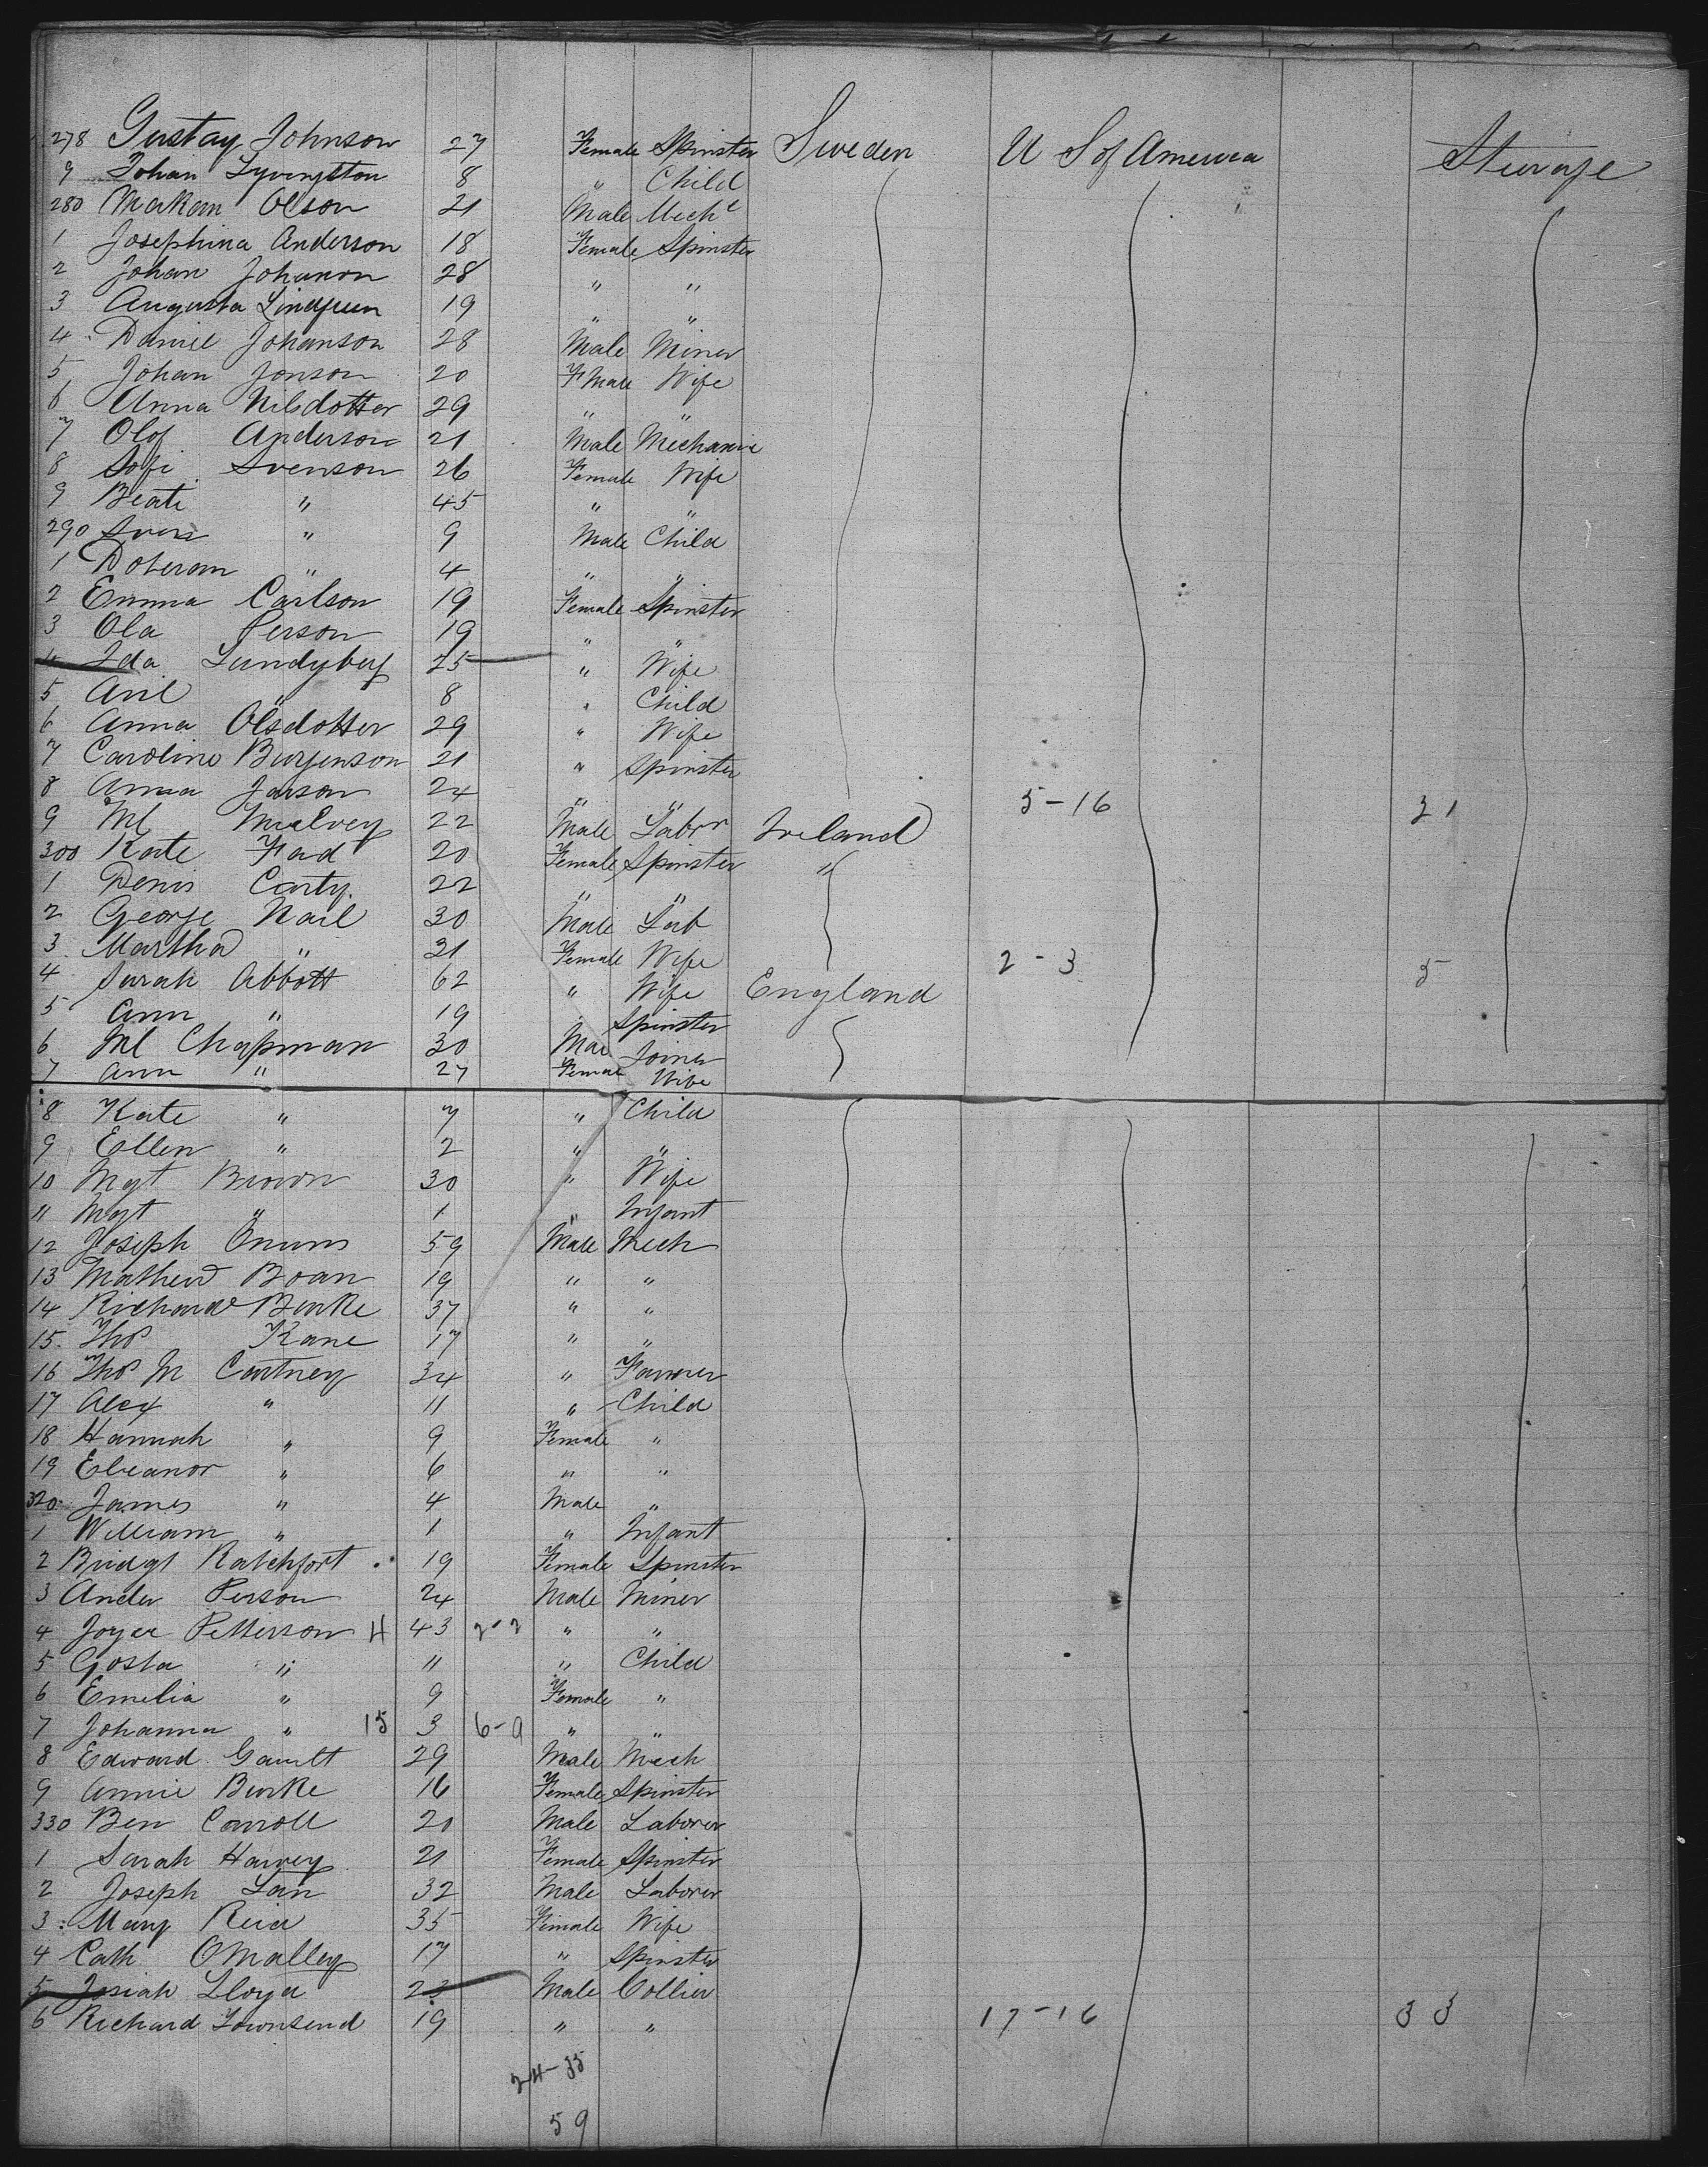 278 Gustav Johnson 27 Female Spinster Sweden U S of America Steerage
9 Johan Lyvingston 8 " Child
280 Olson 21 Male Mech
1 Josephina Anderson 18 Female Spinster
2 Johan Johanson 28 " "
3 Augusta Lindgreen 19 " "
4 Daniel Johanson 28 Male Miner
5 Johan Jonson 20 FMale Wife
6 Anna Nilsdotter 29 " "
7 Olof Anderson 21 Male Mechanic
8 Sofi Svenson 26 Female Wife
9 Beate " 45 " "
290 Sven " 9 Male Child
1 " 4 " "
2 Emma Carlson 19 Female Spinster
3 Ola Person 19 " "
4 Ida Lundyberg 25 " Wife
5 Axil " 8 " Child
6 Anna Olsdotter 29 " Wife
7 Caroline Burgenson 21 " Spinster
8 Anna Janson 24 " " 5-16 21
9 Ml Mulvey 22 Male Labor Ireland
300 Kate Fad 20 Female Spinster "
1 Denis Carty 22 " "
2 George Nail 30 Male Lab
3 Martha " 31 Female Wife 2-3 5
4 Sarah Abbott 62 " Wife England
5 Ann " 19 " Spinster
6 Ml Chapman 30 Male Joiner
7 Ann " 27 Female Wife
8 Kate " 7 " Child
9 Ellen " 2 " "
10 Mgt Brown 30 " Wife
11 Mgt " 1 " Infant
12 Joseph 59 Male Mech
13 Mathew Boan 19 " "
14 Richard Burke 37 " "
15 Thos Kane 17 " "
16 Thos M Cartney 34 " Farmer
17 Alex " 11 " Child
18 Hannah " 9 Female "
19 Eleanor " 6 " "
320 James " 4 Male "
1 William " 1 " Infant
2 Bridgt Ratchfort 19 Female Spinster
3 Ander Person 24 Male Miner
4 Petterson 4 43 2-2 " "
5 Gosta " 11 " Child
6 Emelia " 9 Female "
7 Johanna " 15 3 6-9 " "
8 Edward Gault 29 Male Mech
9 Annie Burke 16 Female Spinster
330 Ben Carroll 20 Male Laborer
1 Sarah Harvey 21 Female Spinster
2 Joseph Lain 32 Male Laborer
3 Mary Reid 35 Female Wife
4 Cath OMalley 17 " Spinster
5 Josiah Lloyd 23 Male Collier
6 Richard Townsend 19 " " 17-16 33
24-35
59